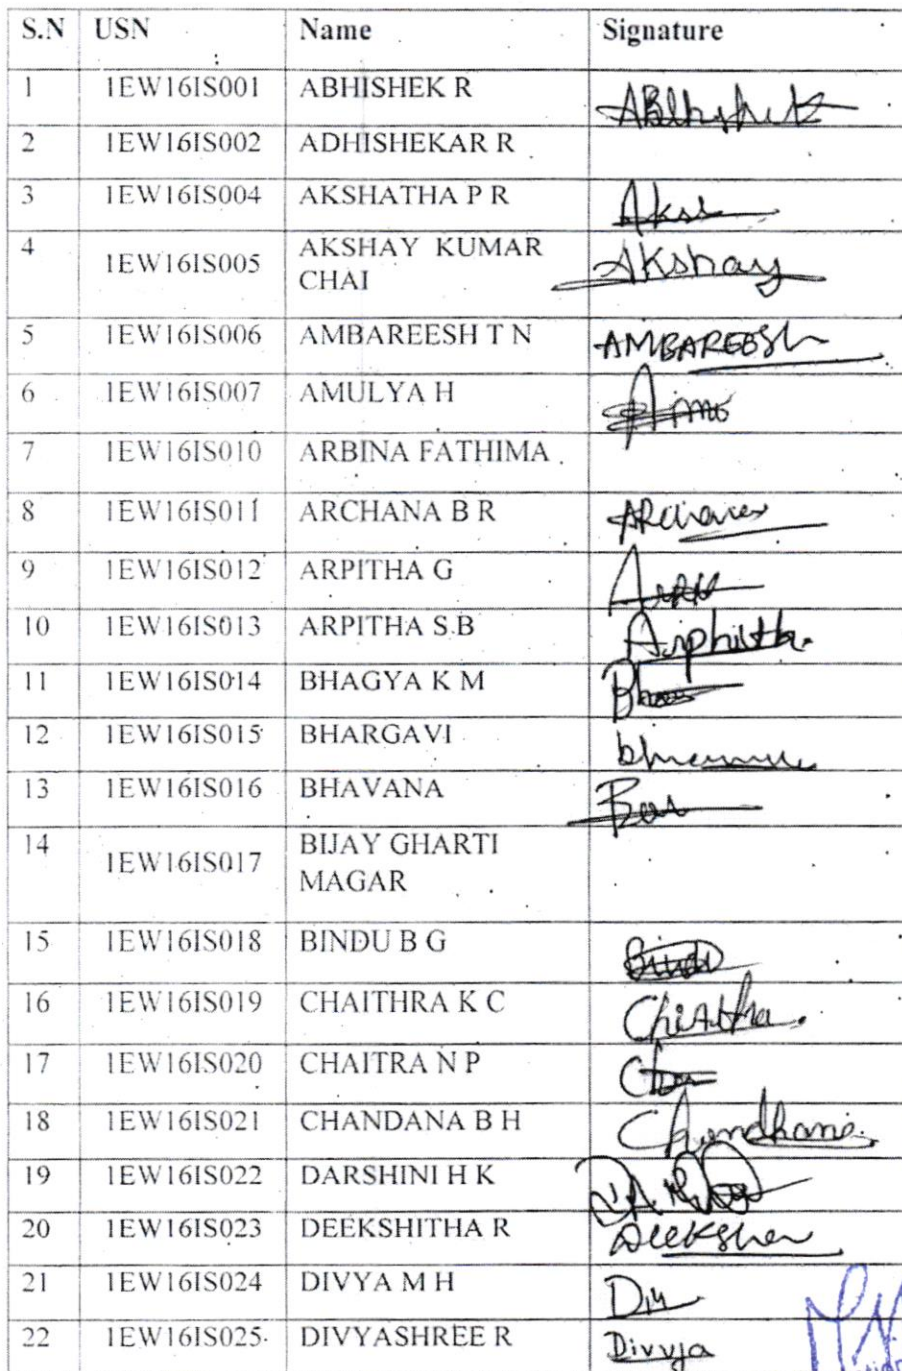 S.N USN Name Signature
1 1EW16IS001 ABHISHEK R ABhhishek
2 1EW16IS002 ADHISHEKAR R
3 1EW16IS004 AKSHATHA P R
4 1EW16IS005 AKSHAY KUMAR CHAI Akshay
5 1EW16IS006 AMBAREESH T N AMBAREESH
6 1EW16IS007 AMULYA H
7 1EW16IS010 ARBINA FATHIMA
8 1EW16IS011 ARCHANA B R
9 1EW16IS012 ARPITHA G
10 1EW16IS013 ARPITHA S.B
11 1EW16IS014 BHAGYA K M
12 1EW16IS015 BHARGAVI
13 1EW16IS016 BHAVANA
14 1EW16IS017 BIJAY GHARTI MAGAR
15 1EW16IS018 BINDU B G Bindu
16 1EW16IS019 CHAITHRA K C
17 1EW16IS020 CHAITRA N P
18 1EW16IS021 CHANDANA B H
19 1EW16IS022 DARSHINI H K
20 1EW16IS023 DEEKSHITHA R
21 1EW16IS024 DIVYA M H
22 1EW16IS025 DIVYASHREE R Divvya